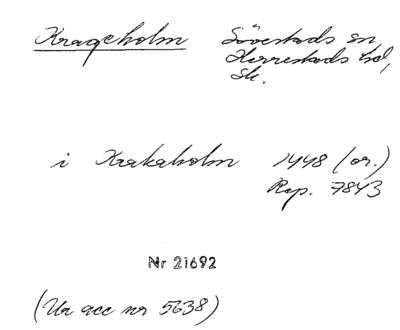 Krageholm Sövestads sn,
Herrestads hd,
Sk.
i Krakaholm 1448 (or.)
Rep. 7843
Nr 21692
(Ur acc nr 5638)